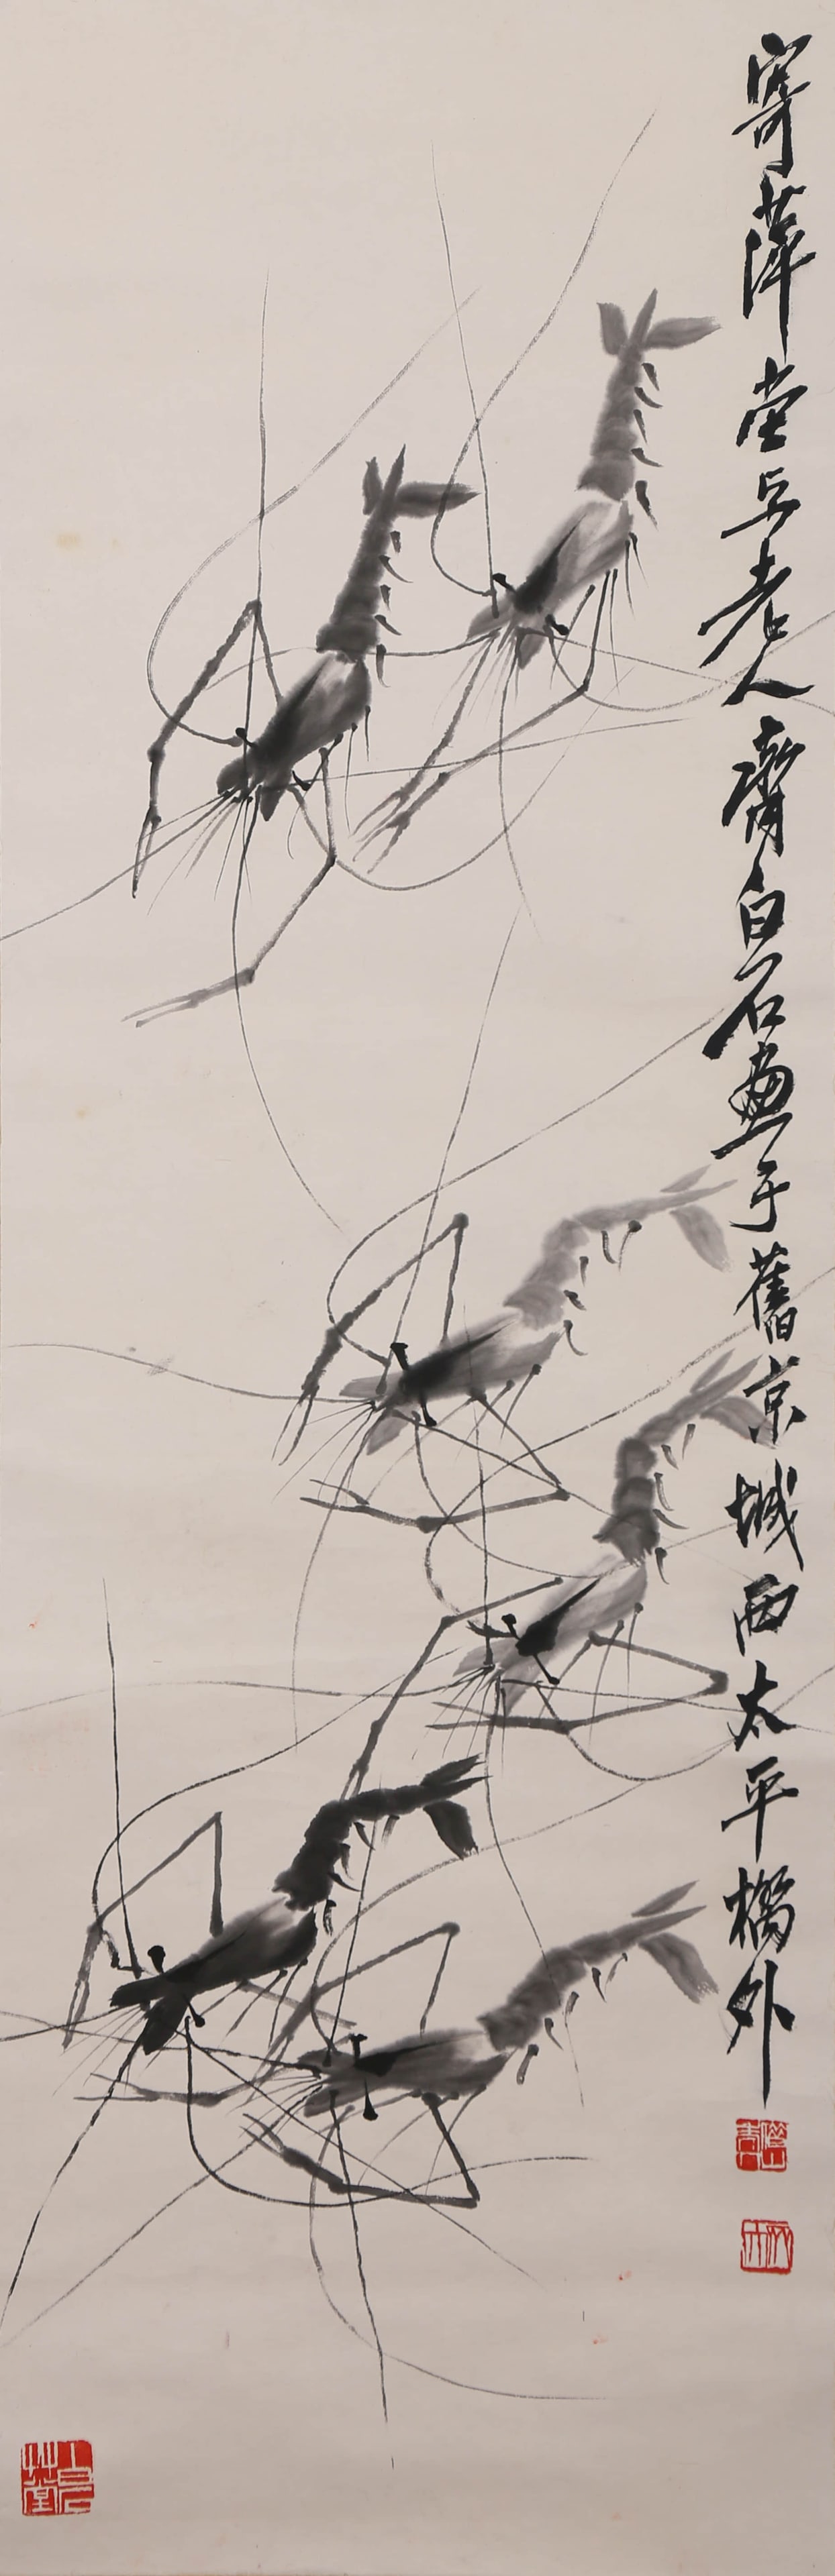 寄萍堂上老人齊白石畫于舊京城西太平橋外